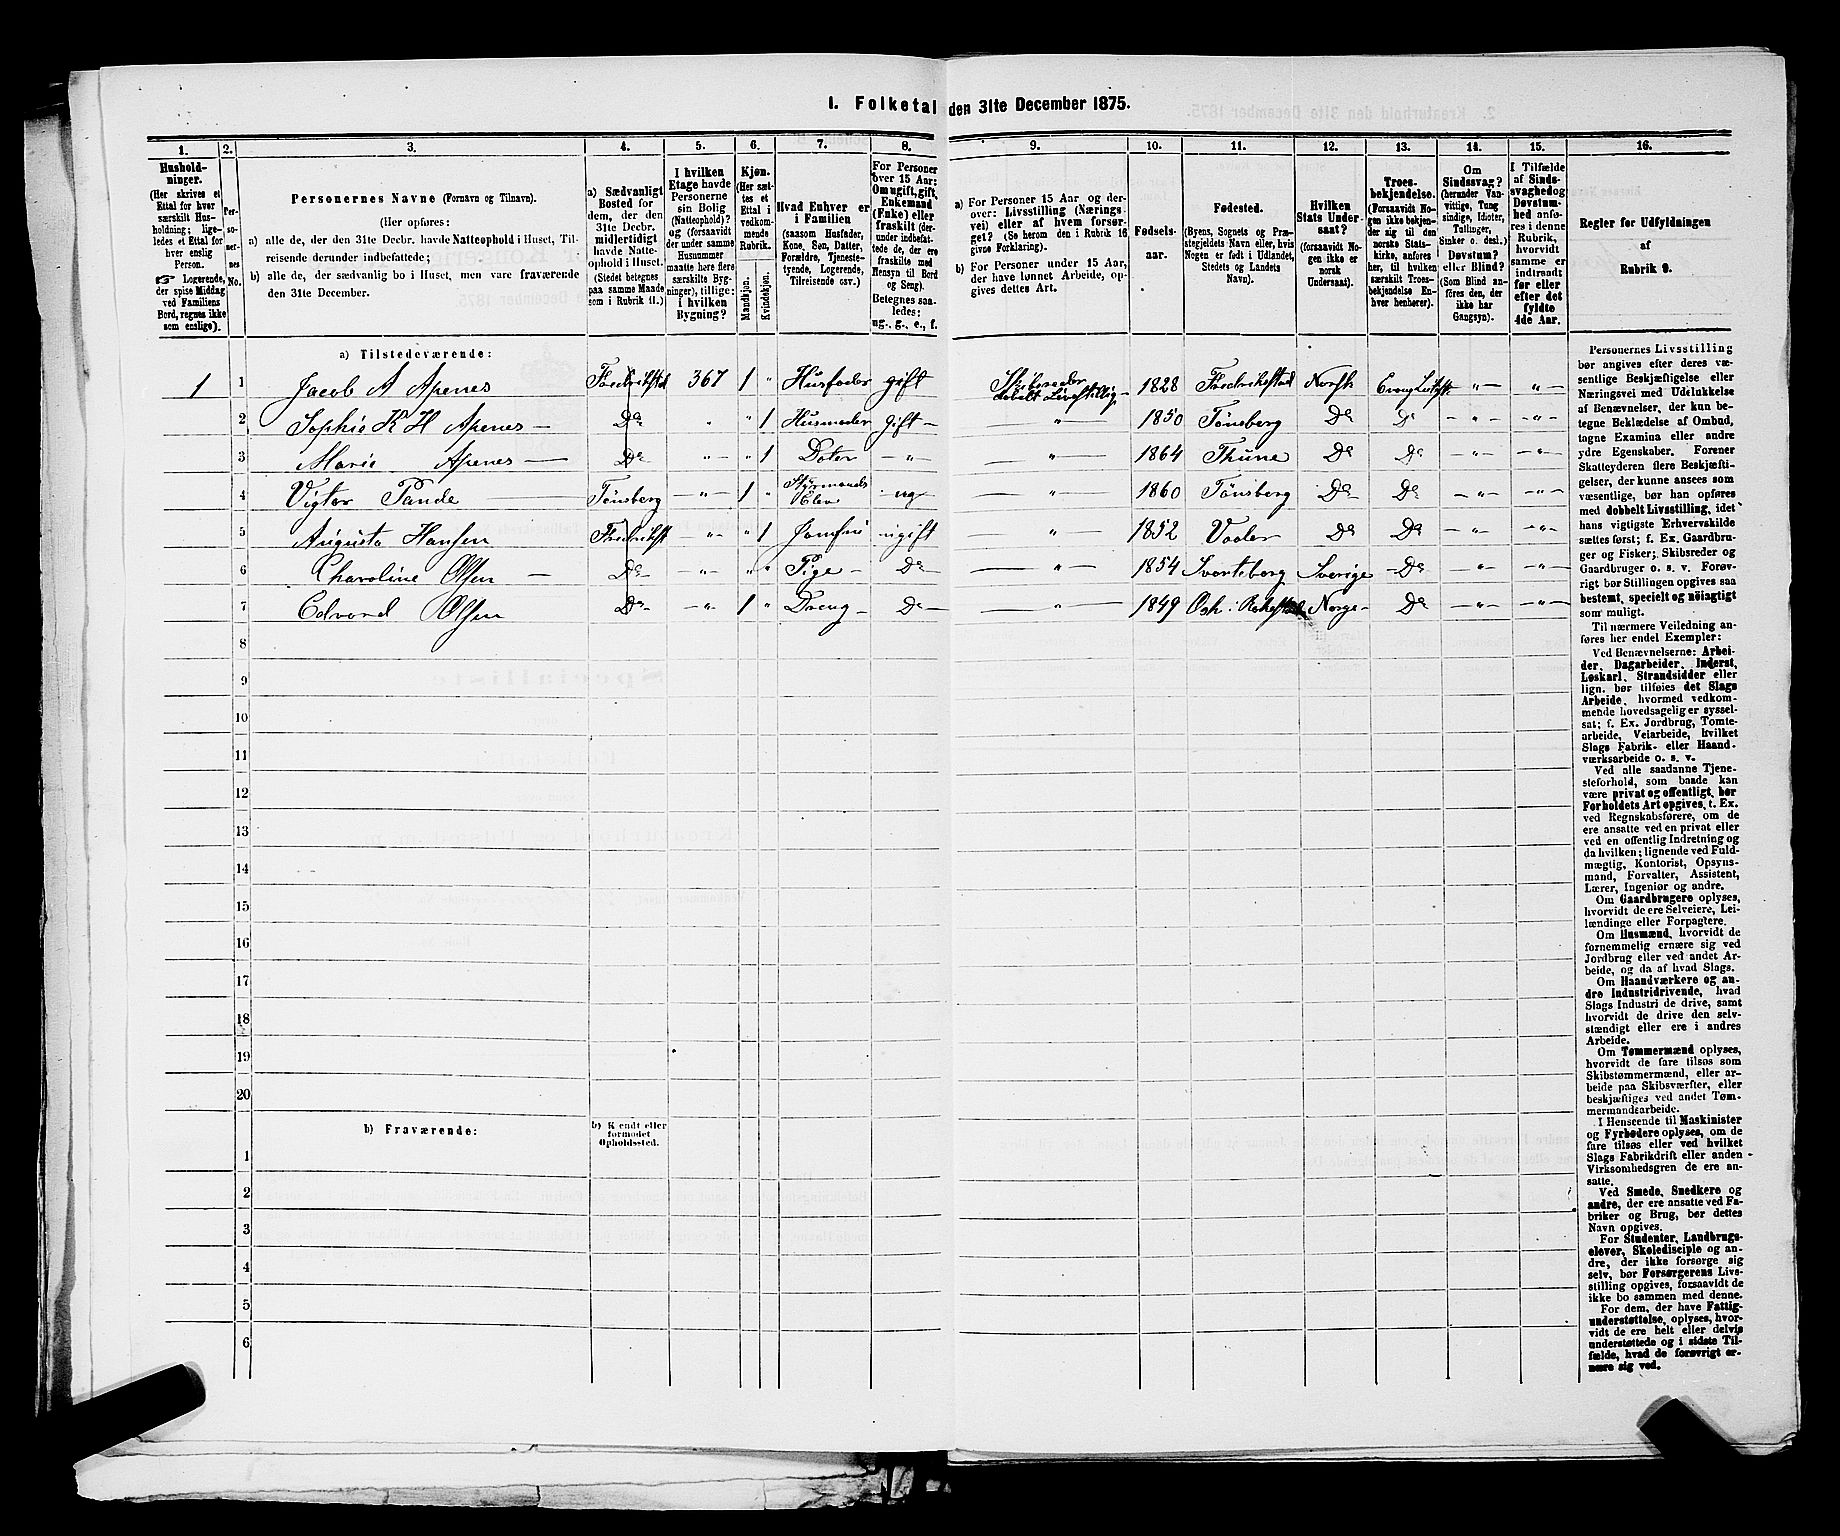 1. Folketal den 31te December 1875.
1. 2. 3. 4. 5. 6. 7. 8. 9. 10. 11. 12. 13. 14. 15. 16.
Hushold-
ninger.
(Her skrives et
Ettal for hver
særskilt Hus-
holdning; lige-
ledes et Ettal for
hver enslig
Person.
☞ Logerende,
der spise Middag
ved Familiens
Bord, regnes ikke
som enslige).
Per-
so-
ner-
nes
No.
Personernes Navne (Fornavn og Tilnavn).
(Her opføres:
a) alle de, der den 31te Decbr. havde Natteophold i Huset, Til-
reisende derunder indbefattede;
b) alle de, der sædvanlig bo i Huset, men vare fraværende
den 31te December.
a) Sædvanligt
Bosted for
dem, der den
31te Decbr.
midlertidigt
havde Natte-
ophold i Huset.
(Stedet betegnes
paa samme Maade
som i Rubrik 11.)
I hvilken
Etage havde
Personerne
sin Bolig
(Natteophold)?
og (forsaavidt
der under samme
Husnummer
maatte høre flere
særskilte Byg-
ninger), tillige:
i hvilken
Bygning?
Kjøn.
(Her sæt-
tes et
Ettal i
vedkom-
mende
Rubrik.
Mandkjøn.
Kvindekjøn.
Hvad Enhver er
i Familien
(saasom Husfader,
Kone, Søn, Datter,
Forældre, Tjeneste-
tyende, Logerende,
Tilreisende osv.)
For Personer
over 15 Aar:
Om ugift, gift,
Enkemand
(Enke) eller
fraskilt (der-
under indbefat-
tede de, der ere
fraskilte med
Hensyn til Bord
og Seng).
Betegnes saa-
ledes:
ug., g., e., f.
a) For Personer 15 Aar og der-
over: Livsstilling (Nærings-
vei) eller af hvem forsør-
get? (Se herom den i Rubrik 16
givne Forklaring).
b) For Personer under 15 Aar,
der have lønnet Arbeide, op-
gives dettes Art.
Fødsels-
aar.
Fødested.
(Byens, Sognets og Præ-
stegjeldets Navn eller, hvis
Nogen er født i Udlandet,
Stedets og Landets
Navn).
Hvilken
Stats Under-
saat?
(forsaavidt No-
gen ikke er
norsk
Undersaat).
Troes-
bekjendelse.
(Forsaavidt No-
gen ikke bekjen-
der sig til den
norske Stats-
kirke, anføres
her, til hvilken
særskilt Troes-
bekjendelse En-
hver henhører).
Om
Sindssvag?
(herunder Van-
vittige, Tung-
sindige, Idioter,
Tullinger,
Sinker o. desl.)
Døvstum?
eller Blind?
(Som Blind an-
føres den, der
ikke har
Gangsyn).
I Tilfælde
af Sinds-
svaghed og
Døvstum-
hed anfø-
res i denne
Rubrik,
hvorvidt
samme er
indtraadt
før eller
efter det
fyldte
4de Aar.
Regler for Udfyldningen
af
Rubrik 9.
a) Tilstedeværende:
1 1 Jacob A Apenes Fredrikstad 367 1 " Husfader gift Skibsreder dobelt Livsstillig 1828 Fredrikstad Norsk Evang Luthsk " "
2 Sophie K H Apenes — Do " " 1 Husmoder gift — " 1850 Tønsberg Do Do " "
3 Marie Apenes — Do " " 1 Dater " " 1864 Thune Do Do " "
4 Vigtor Pande — Tønsberg " 1 " Styrmands Elev ug " 1860 Tønsberg Do Do " "
5 Augusta Hansen Fredrikst " " 1 Jomfru ugift " 1852 Vaaler Do Do " "
6 Charoline Olsen — Do " " " Pige Do " 1854 Svarteborg Sverige Do " "
7 Edvard Olsen Do " 1 " Dreng Do " 1849 Norge Do " "
8
9
10
11
12
13
14
15
16
17
18
19
20
b) Fraværende:
b) Kjendt eller
formodet
Opholdssted.
1
2
3
4
5
6
Personernes Livsstilling
bør angives efter deres væ-
sentlige Beskjæftigelse eller
Næringsvei med Udelukkelse
af Benævnelser, der kun be-
tegne Beklædelse af Ombud,
tagne Examina eller andre
ydre Egenskaber. Forener
Skatteyderen flere Beskjæfti-
gelser, der kunne ansees som
væsentlige, bør han opføres
med dobbelt Livsstilling, idet
hans vigtigste Erhvervskilde
sættes først; f. Ex. Gaardbru-
ger og Fisker; Skibsreder og
Gaardbruger o. s. v. Forøv-
rigt bør Stillingen opgives saa
bestemt, specielt og nøiagtigt
som muligt.
Til nærmere Veiledning an-
føres her endel Exempler:
Ved Benævnelserne: Arbei-
der, Dagarbeider, Inderst,
Løskarl, Strandsidder eller
lign. bør tilføies det Slags
Arbeide, hvormed vedkom-
mende hovedsagelig er syssel-
sat; f. Ex. Jordbrug, Tomte-
arbeide, Veiarbeide, hvilket
Slags Fabrik- eller Haand-
værksarbeide o. s. v.
Ved alle saadanne Tjene-
steforhold, som baade kan
være privat og offentligt, bør
Forholdets Art opgives, t. Ex.
ved Regnskabsførere, om de
ere ansatte ved en privat eller
ved en offentlig Indretning og
da hvilken; lignende ved Fuld-
mægtig, Kontorist, Opsyns-
mand, Forvalter, Assistent,
Lærer, Ingeniør og andre.
Om Gaardbrugere oplyses,
hvorvidt de ere Selveiere, Lei-
lændinge eller Forpagtere.
Om Husmænd, hvorvidt de
fornemmelig ernære sig ved
Jordbrug eller ved andet Ar-
beide, og da af hvad Slags.
Om Haandværkere og an-
dre Industridrivende, hvad
Slags Industri de drive, samt
hvorvidt de drive den selv-
stændigt eller ere i andres
Arbeide.
Om Tømmermænd oplyses,
hvorvidt de fare tilsøs som
Skibstømmermænd, eller ar-
beide paa Skibsværfter, eller
beskjæftiges ved andet Tøm-
mermandsarbeide.
I Henseende til Maskinister
og Fyrbødere oplyses, om de
fare tilsøs eller ved hvilket
Slags Fabrikdrift eller anden
Virksomhedsgren de ere an-
satte.
Ved Smede, Snedkere og
andre, der ere ansatte ved Fa-
briker og Brug, bør dettes
Navn opgives.
For Studenter, Landbrugs-
elever, Skoledisciple og an-
dre, der ikke forsørge sig
selv, bør Forsørgerens Livs-
stilling opgives, forsaavidt de
ikke bo sammen med denne.
For dem, der have Fattig-
understøttelse, oplyses, hvor-
vidt de ere helt eller delvis
understøttede og i sidste Til-
fælde, hvad de forøvrigt er-
nære sig ved.